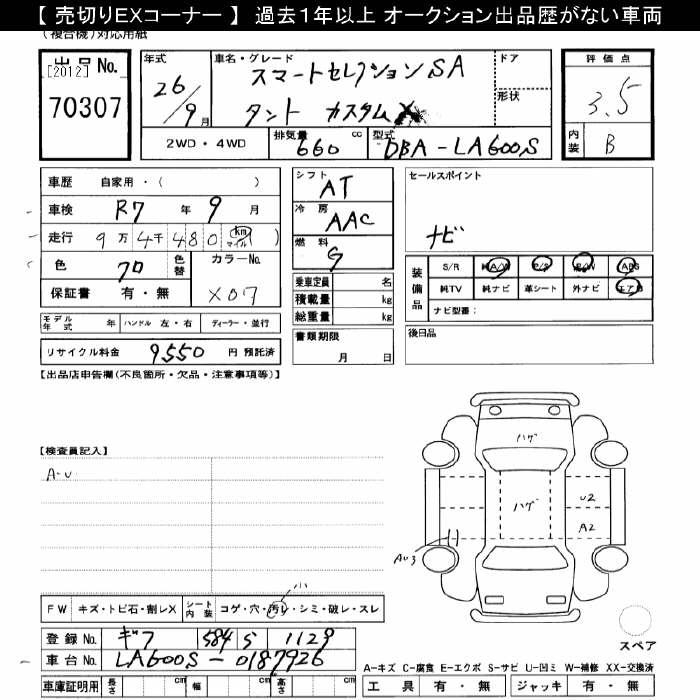 【 売切りEXコーナー 】 過去１年以上 オークション出品歴がない車両
(複合機)対応用紙
出品 No.
[2012]
70307
年式
26/9月
車名・グレード
スマートセレクションSA
タント カスタムX
ドア
形状
評価点
3.5
内装
B
2WD・4WD
排気量 660 cc
型式 DBA-LA600S
車歴 自家用・( )
車検 R7 年 9 月
走行 9万4千480 (km マイル)
色 クロ 色替
カラーNo. X07
保証書 有・無
シフト AT
冷房 AAC
燃料 G
乗車定員 名
積載量 kg
総重量 kg
セールスポイント
ナビ
装備品
S/R 純A/W P/S P/W ABS
純TV 純ナビ 革シート 外ナビ エアB
ナビ型番:
モデル年式 年 ハンドル 左・右 ディーラー・並行
書類期限
月 日
後日品
リサイクル料金 9550 円 預託済
【出品店申告欄(不良箇所・欠品・注意事項等)】
【検査員記入】
A-U
ハゲ
ハゲ
U2
A2
AU3
小
FW キズ・トビ石・割レX
シート内装 コゲ・穴・汚レ・シミ・破レ・スレ
登録 No. ギフ 584 す 1129
車台 No. LA600S-0187926
車庫証明用 長さ cm 幅 cm 高さ cm
スペア
A-キズ C-腐食 E-エクボ S-サビ U-凹ミ W-補修 XX-交換済
工具 有・無 ジャッキ 有・無